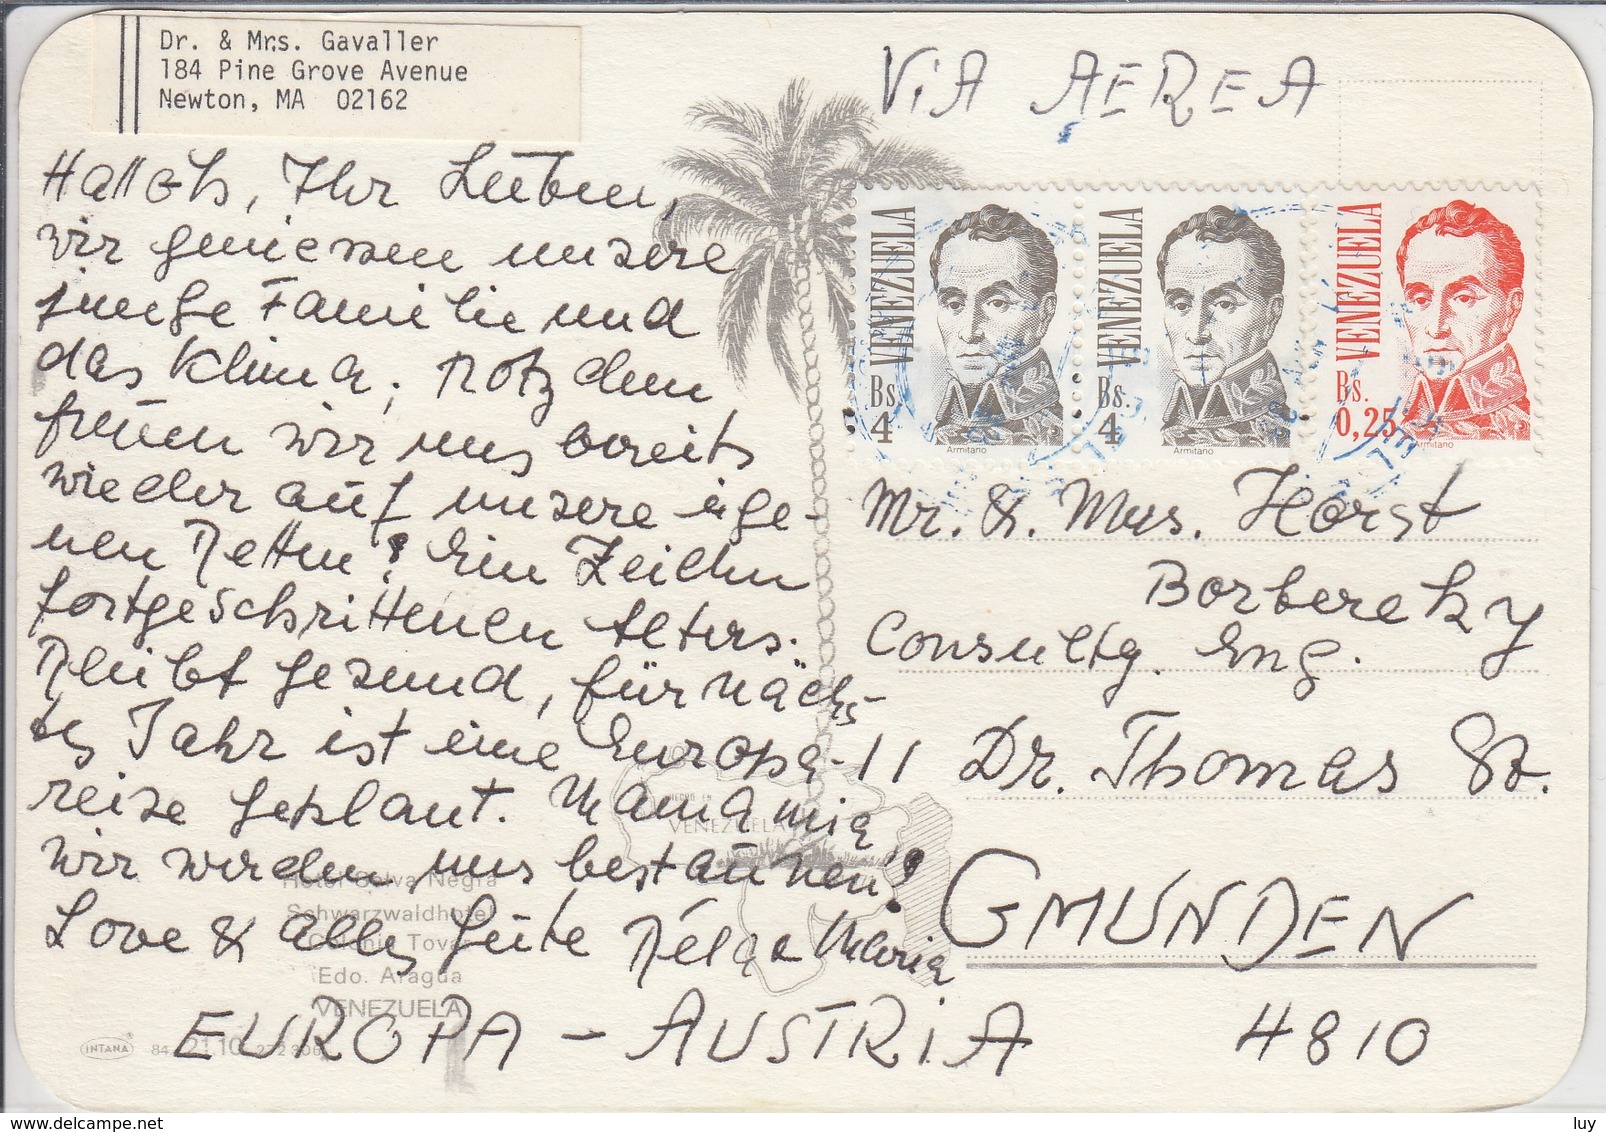 Dr. & Mrs. Gavaller
184 Pine Grove Avenue
Newton, MA 02162
ViA AEREA
Halloh, Ihr Lieben,
wir geniessen unsere
junge Familie und
das Klima, trotzdem
freuen wir uns bereits
wieder auf unsere eige-
nen Betten! Ein Zeichen
fortgeschrittenen Alters.
Bleibt gesund, für näch-
tes Jahr ist eine Europa-
reise geplant. Mama mia
wir werden uns bestaunen!
Love & alles Gute Béla & Maria
VENEZUELA
Bs. 4
Armitano
VENEZUELA
Bs. 4
Armitano
VENEZUELA
Bs. 0,25
Armitano
Mr. & Mrs. Horst
Borbereky
Consultg. Eng.
11 Dr. Thomas St.
GMUNDEN
EUROPA - AUSTRiA 4810
HECHO EN
VENEZUELA
Hotel Selva Negra
Schwarzwaldhotel
Colonia Tovar
Edo. Aragua
VENEZUELA
INTANA
delcampe.net
luy